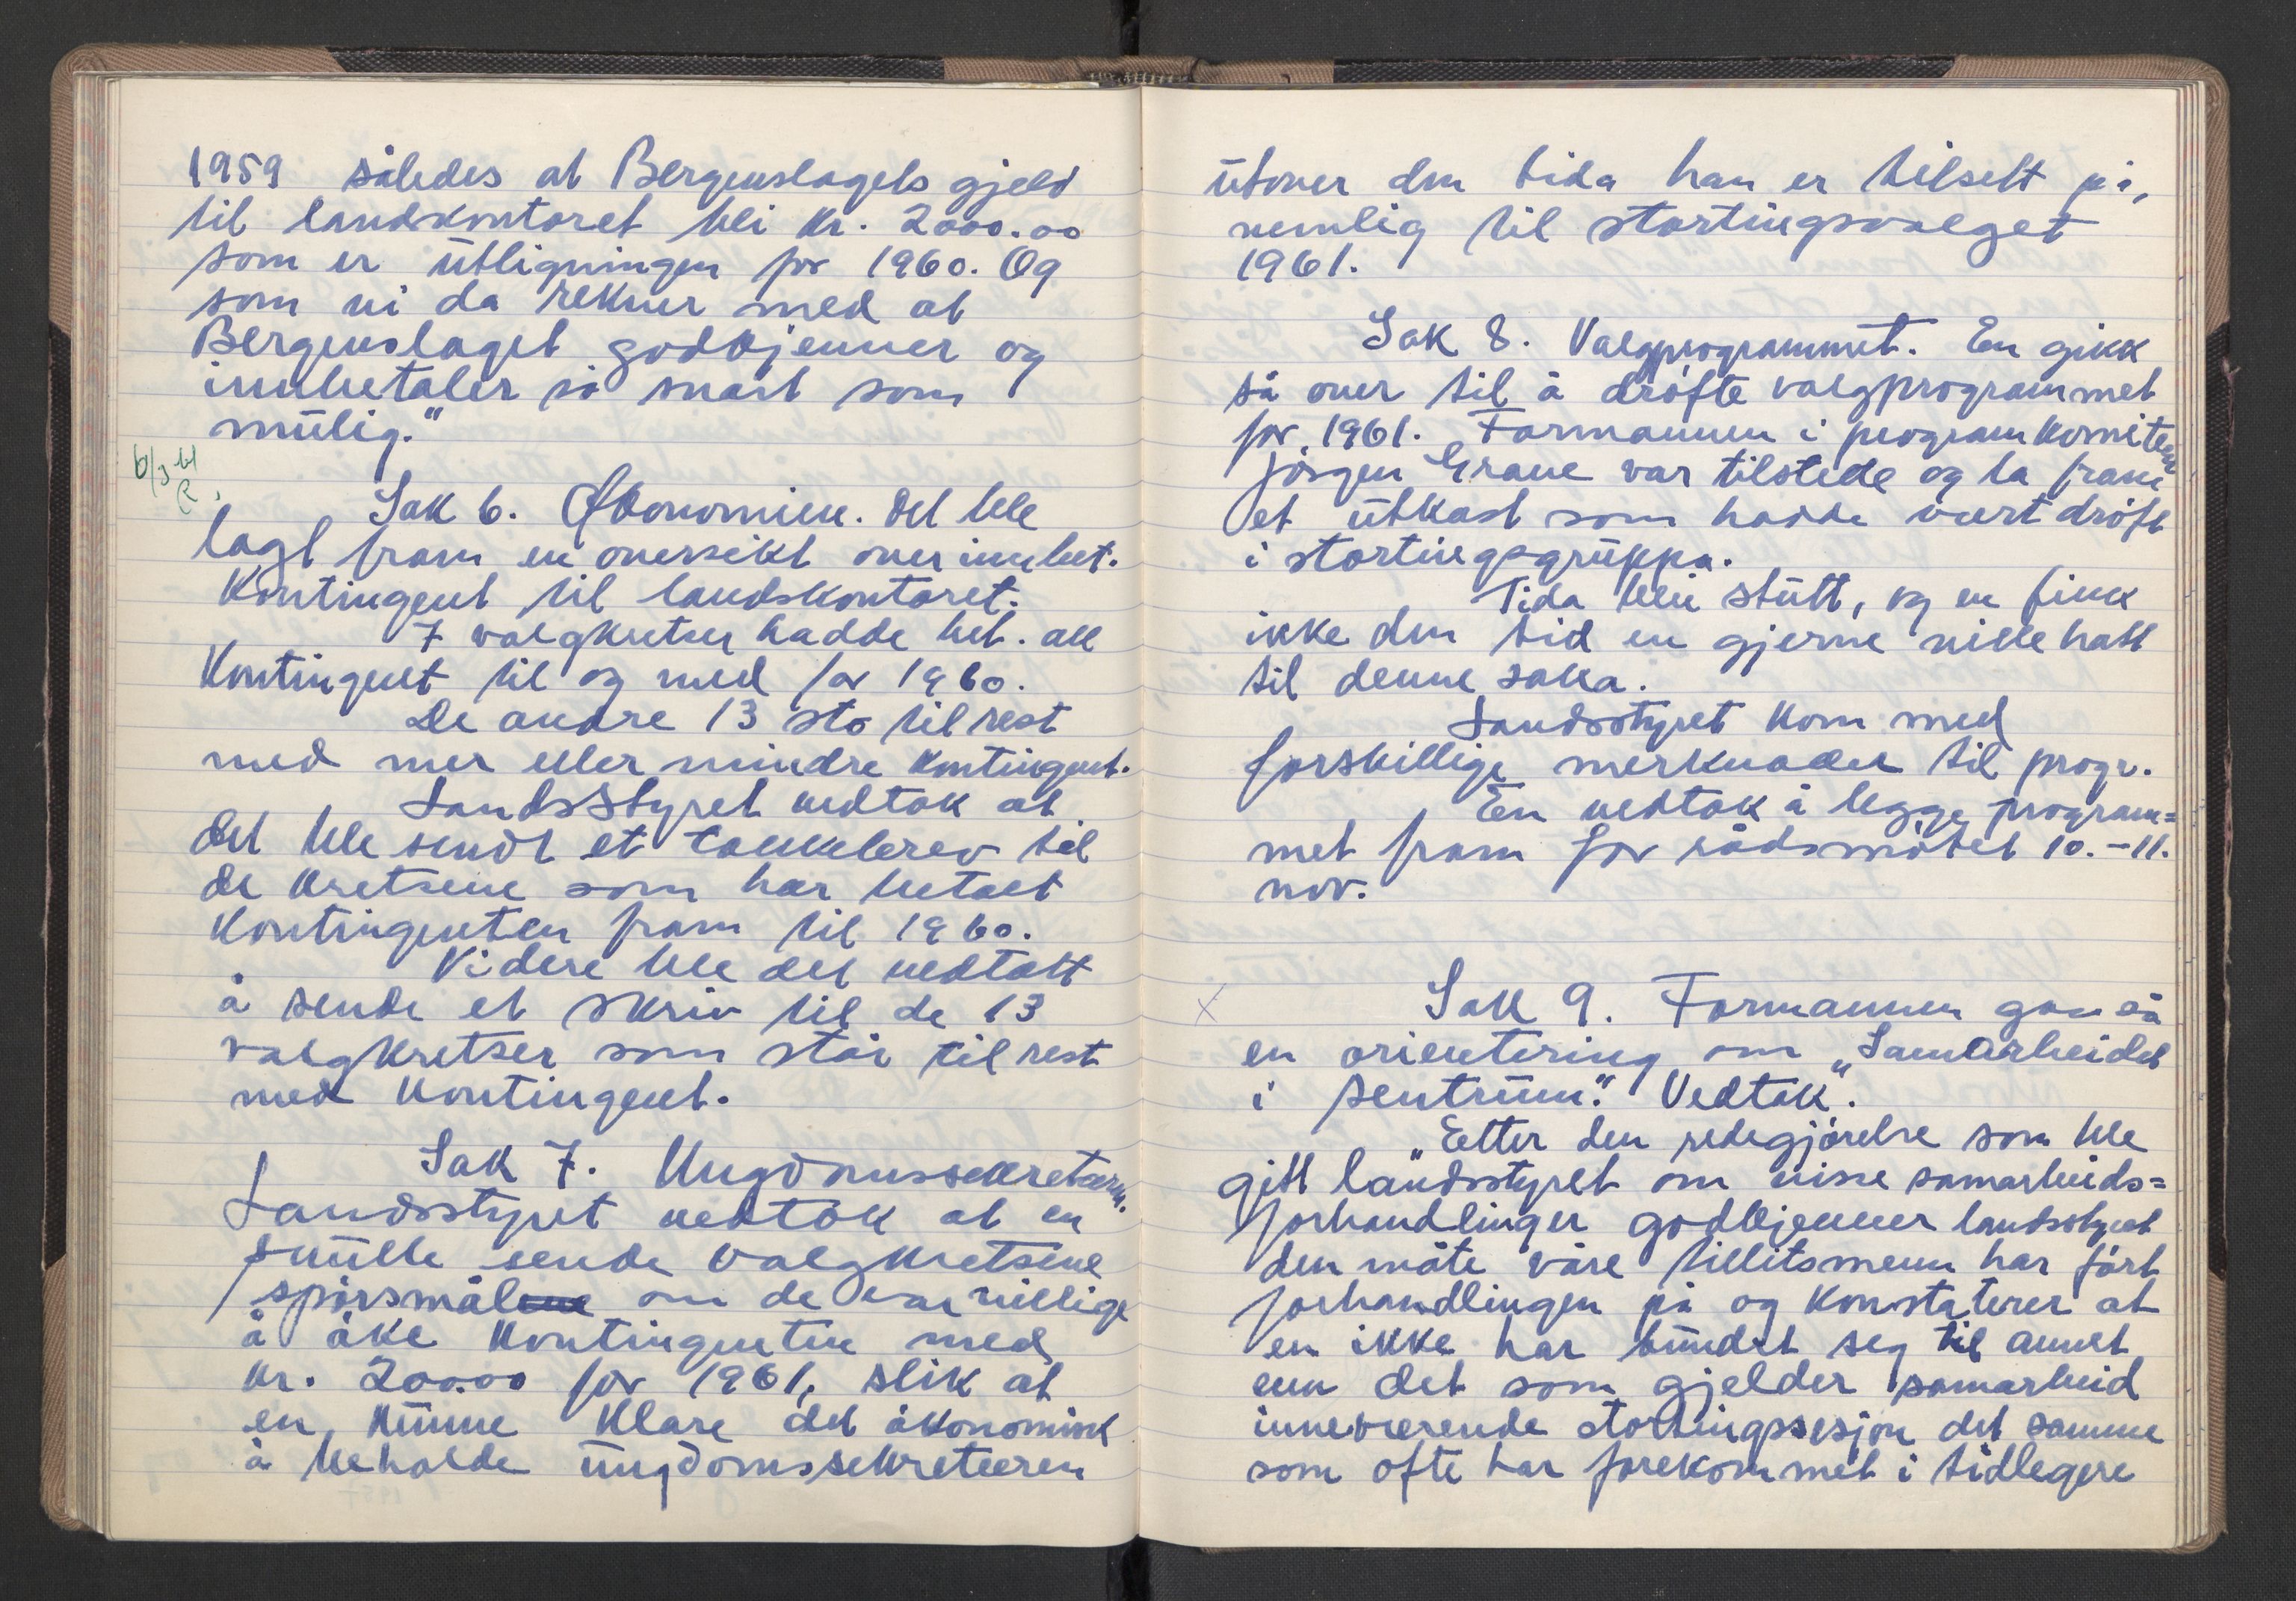 1959 således at Bergenslagets gjeld
til landskontoret bli kr. 2000.00
som er utligningen for 1960. Og
som vi da rekner med at
Bergenslaget godkjenner og
innbetaler så snart som
mulig."
Sak 6. Økonomien. Det ble
lagt fram en oversikt over innbet.
kontingent til landskontoret.
7 valgkretser hadde bet. all
kontingent til og med for 1960.
De andre 13 sto til rest
med mer eller mindre kontingent.
Landsstyret vedtok at
det ble sendt et takkebrev til
de kretsene som har betalt
kontingenten fram til 1960.
Videre ble det vedtatt
å sende et skriv til de 13
valgkretser som står til rest
med kontingent.
Sak 7. Ungdomssekretæren.
Landsstyret vedtok at en
skulle sende valgkretsene
spørsmål om de var villige
å øke kontingenten med
kr. 200.00 for 1961, slik at
en kunne klare det økonomisk
å beholde ungdomssekretæren
utover den tida han er tilsett på,
nemlig til stortingsvalget
1961.
Sak 8. Valgprogrammet. En gikk
så over til å drøfte valgprogrammet
for 1961. Formannen i programkomiteen
Jørgen Grave var tilstede og la fram
et utkast som hadde vært drøft
i stortingsgruppa.
Tida blei stutt, og en fikk
ikke den tid en gjerne ville hatt
til denne saka.
Landsstyret kom med
forskillige merknader til progr.
En vedtok å legge program=
met fram for rådsmøtet 10.-11.
nov.
x Sak 9. Formannen gav så
en orientering om "Samarbeidet
i sentrum". Vedtak".
"Etter den redegjørelse som ble
gitt landsstyret om visse samarbeids=
forhandlinger godkjenner landsstyret
den måte våre tillitsmenn har ført
forhandlingen på og konstaterer at
en ikke har bundet seg til annet
enn det som gjelder samarbeid
inneværende stortingssesjon det samme
som ofte har forekommet i tidlegere